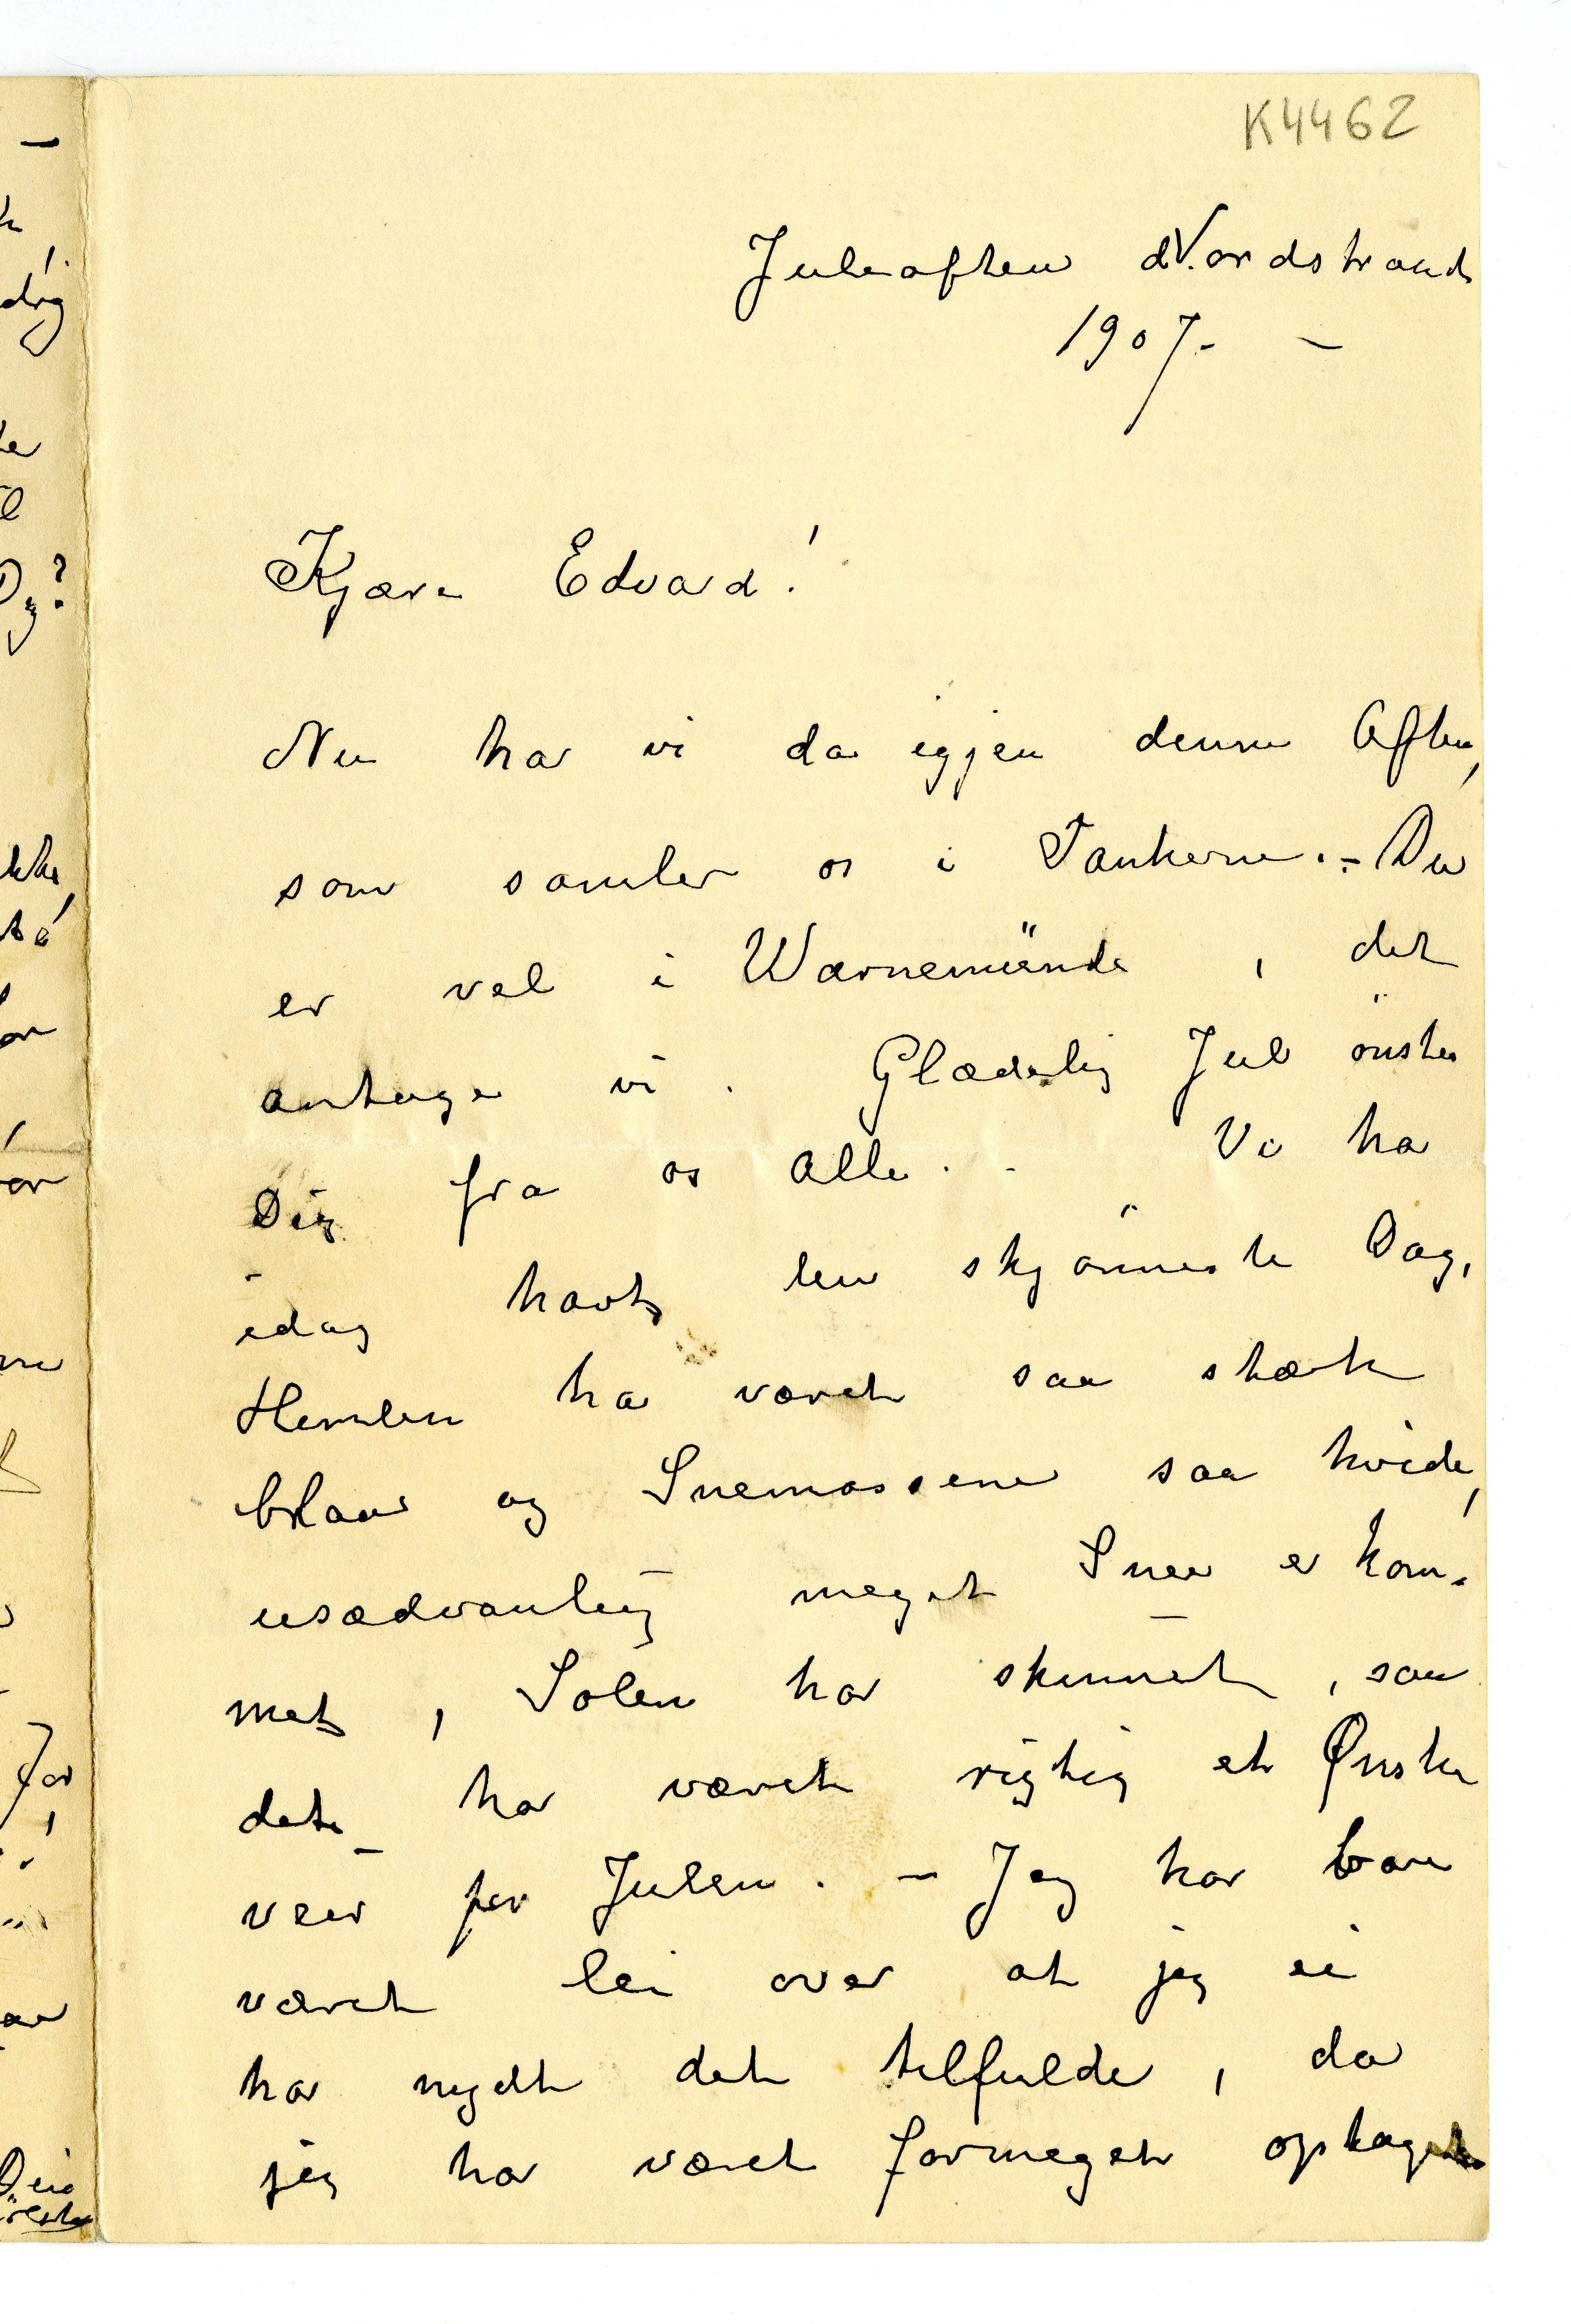 K4462
Juleaften Nordstrand
1907. –
Kjære Edvard!
Nu har vi da igjen denne Aften,
som samler os i Tankerne. – Du
er vel i Warnemünde, det
antager vi. Glædelig Jul önskes
Dig fra os alle. – Vi ha
idag havt den skjönneste Dag,
Himlen ha været saa stærk
blaa og Snemassene saa hvide,
usædvanlig meget Snee er kom-
met, Solen har skinnet, saa
det har været rigtig et Ønske
veir for Julen. – Jeg har bare
været lei over at jeg ei
har nydt det tilfulde, da
jeg har været formeget optaget